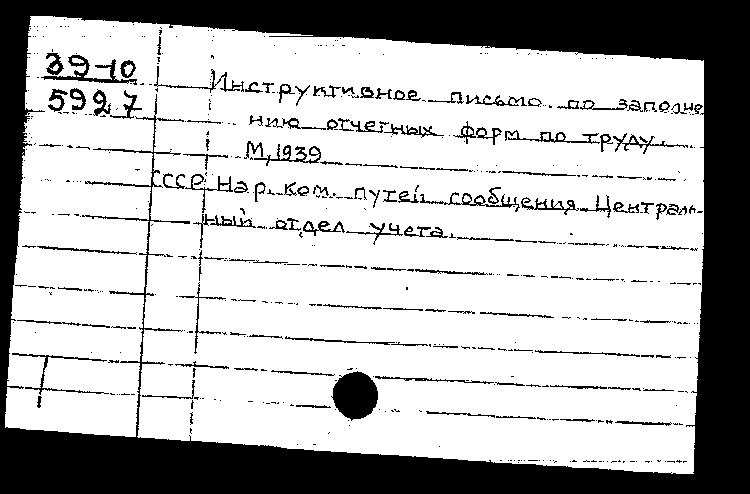 39-10
5927
Инструктивное письмо по заполне
нию отчетных форм по труду.
М, 1939
СССР Нар. ком. путей сообщения Централь-
ный отдел учета.